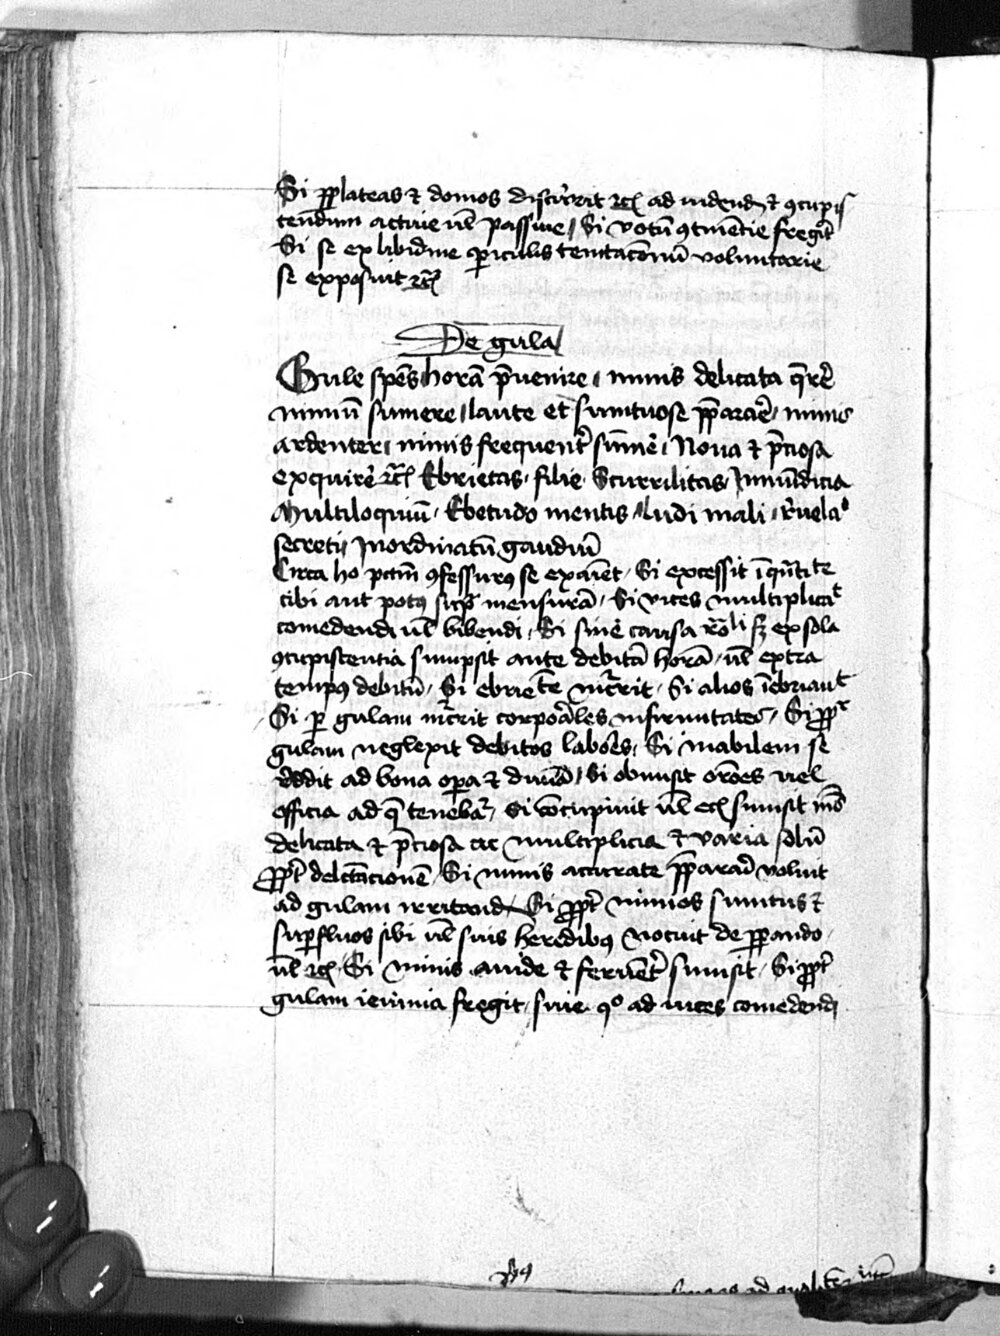 Si p plateas et domos discurrit etc ad videnduȝ et ꝯcupis
cendum actiue ul passiue Si votū ꝯtinētie fregit
Si se ex libidine periculis temtacionū voluntarie
se exposuit etc
De gula
Gule spēs horā p̄uenire nimis delicata q̄rere
nimiū sumere laute et sumtuose p̄parare nimis
ardenter nimis frequenter sumere Noua et p̄ciosa
exquirere etc Ebrietas filie Scurrilitas Inmūdicia
Multiloquiū Ebetudo mentis ludi mali Reuelatio
secreti Inordinatū gaudiū
Circa hoc pctm̄ ꝯfessurus se exaīet Si excessit ī qūtitate
cibi aut potus suam mensurā Si vices multiplicauit
comedendi ul bibendi Si sine causa rōnabili sȝ ex sola
ꝯcupiscentia sumpsit ante debitā horā ul extra
tempus debitū Si ebrietatem incurrit Si alios īebriauit
Si per gulam incurrit corporales infirmitates Si propter
gulam neglexit debitos labores Si inabilem se
reddit ad bona opera et diuina Si obmisit orōes uel
officia ad que tenebatur Si concupiuit ul etc sumsit nimis
delicata et p̄ciosa ac multiplicia et varia solū
propter delectacionē Si nimis accurate p̄parari voluit
ad gulam irritandā Si propter nimios sumtus et
superfluos sibi ul suis heredibus nocuit deparando
ul etc Si nimis auide et feruēter sumsit Si propter
gulam ieiunia fregit siue quo ad vices comedendi